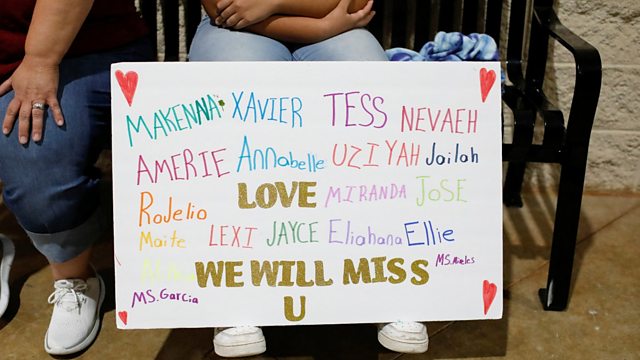 MAKENNA XAVIER TESS NEVAEH
AMERIE Annabelle UZIYAH Jailah
LOVE MIRANDA JOSE
Rojelio
Maite LEXI JAYCE Eliahana Ellie
WE WILL MISS
U
MS. Garcia